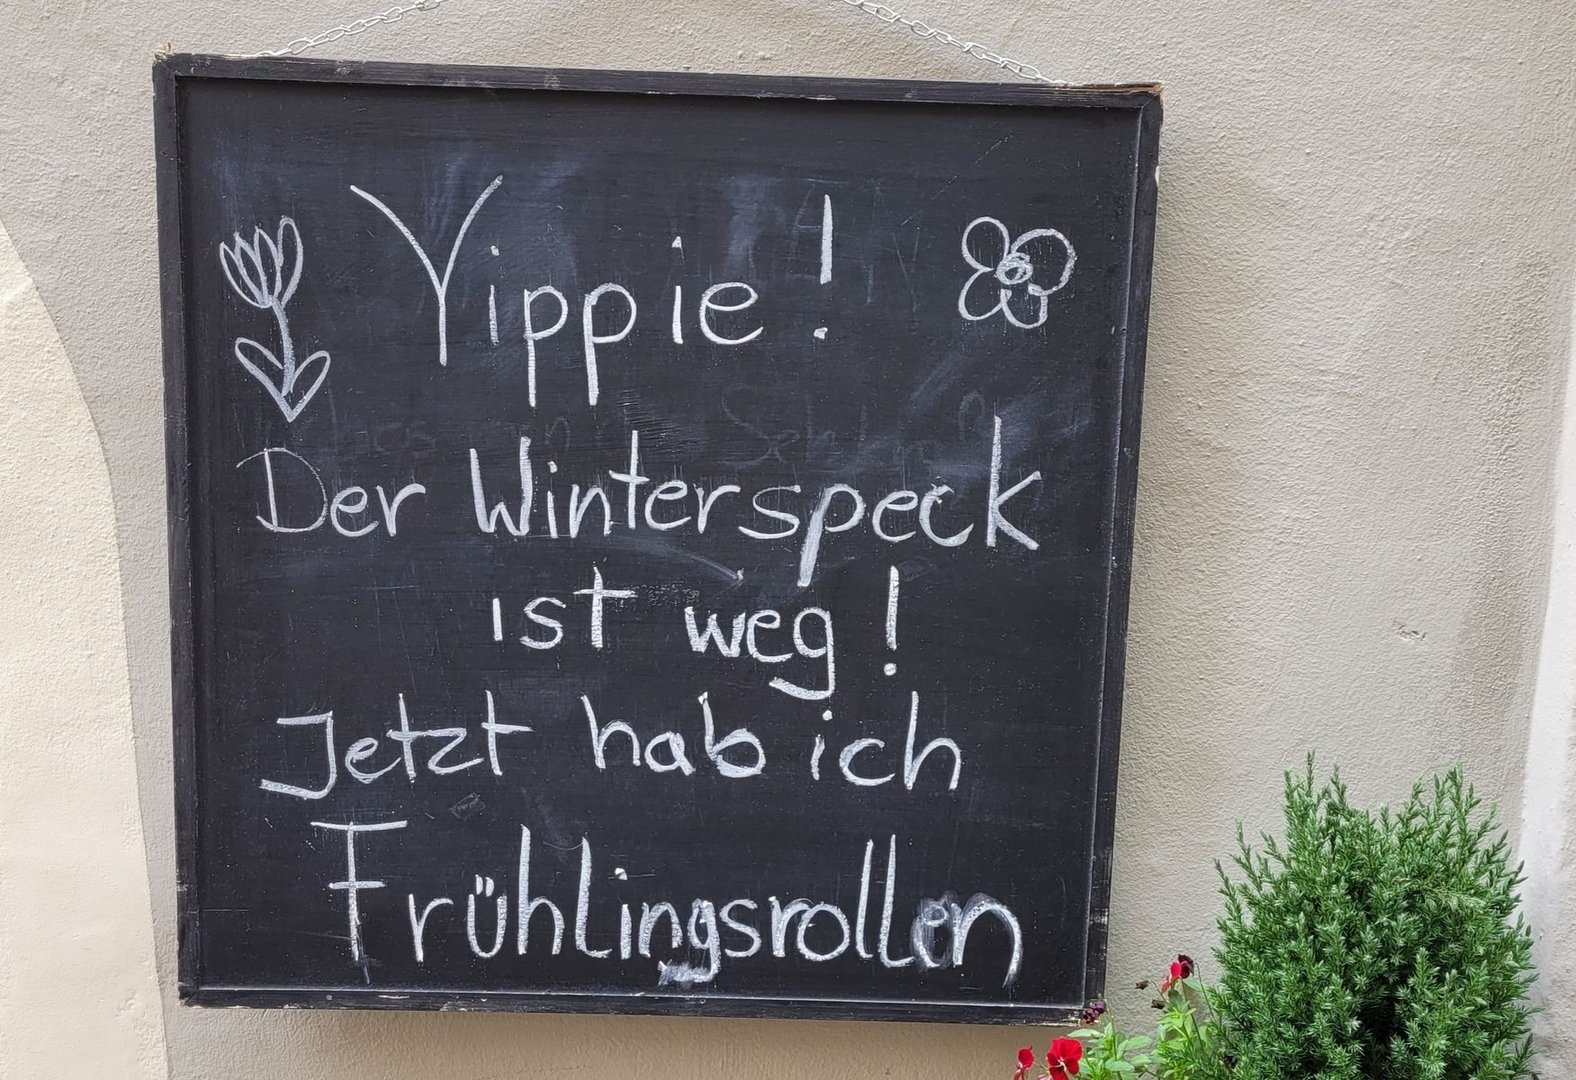 Yippie!
Der Winterspeck
ist weg!
Jetzt hab ich
Frühlingsrollen